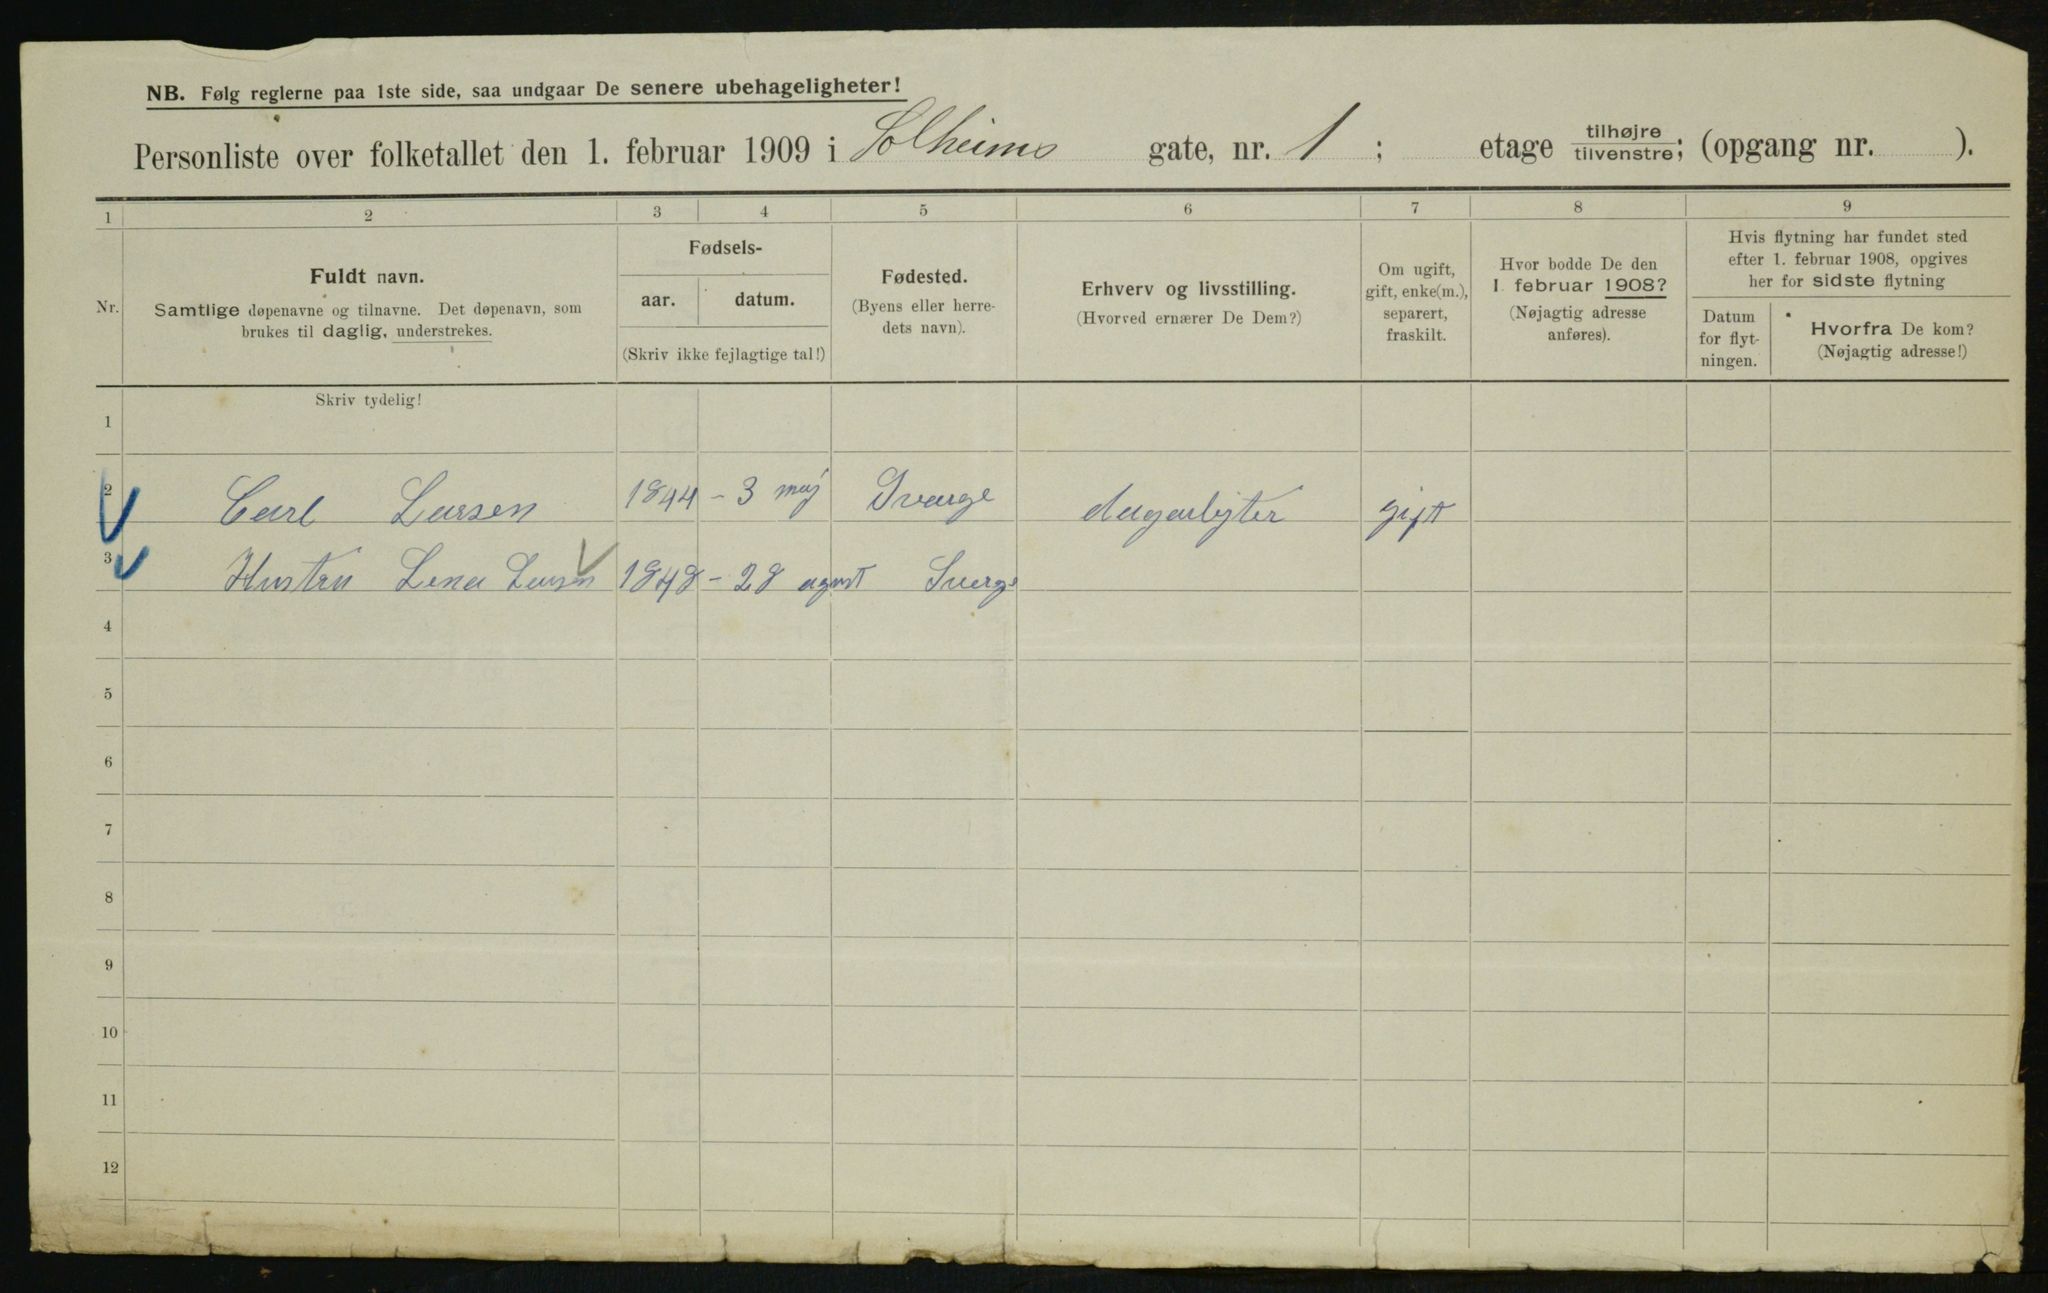 NB. Følg reglerne paa 1ste side, saa undgaar De senere ubehageligheter!
Personliste over folketallet den 1. februar 1909 i Solheims gate, nr. 1 ; etage tilhøjre tilvenstre; (opgang nr. ).
1 2 3 4 5 6 7 8 9
Nr.
Fuldt navn.
Samtlige døpenavne og tilnavne. Det døpenavn, som
brukes til daglig, understrekes.
Fødsels-
aar. datum.
(Skriv ikke fejlagtige tal!)
Fødested.
(Byens eller herre-
dets navn).
Erhverv og livsstilling.
(Hvorved ernærer De Dem?)
Om ugift,
gift, enke(m.),
separert,
fraskilt.
Hvor bodde De den
1 februar 1908?
(Nøjagtig adresse
anføres).
Hvis flytning har fundet sted
efter 1. februar 1908, opgives
her for sidste flytning
Datum
for flyt-
ningen.
Hvorfra De kom?
(Nøjagtig adresse!)
Skriv tydelig!
1
2 Carl Larsen 1844 - 3 maj Svarge dagarbjter gift
3 Hustru Lena Larsen 1848 - 28 agust Sverge
4
5
6
7
8
9
10
11
12